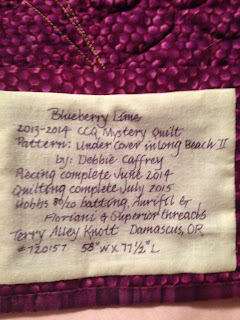 Blueberry Lane
2013-2014 CCQ Mystery Quilt
Pattern: Under Cover in Long Beach II
by: Debbie Caffrey
Piecing complete June 2014
Quilting complete July 2015
Hobbs 80/20 batting, Aurifil &
Floriani & Superior threads
Terry Alley Knott Damascus, OR
#720157 58" W X 77½" L